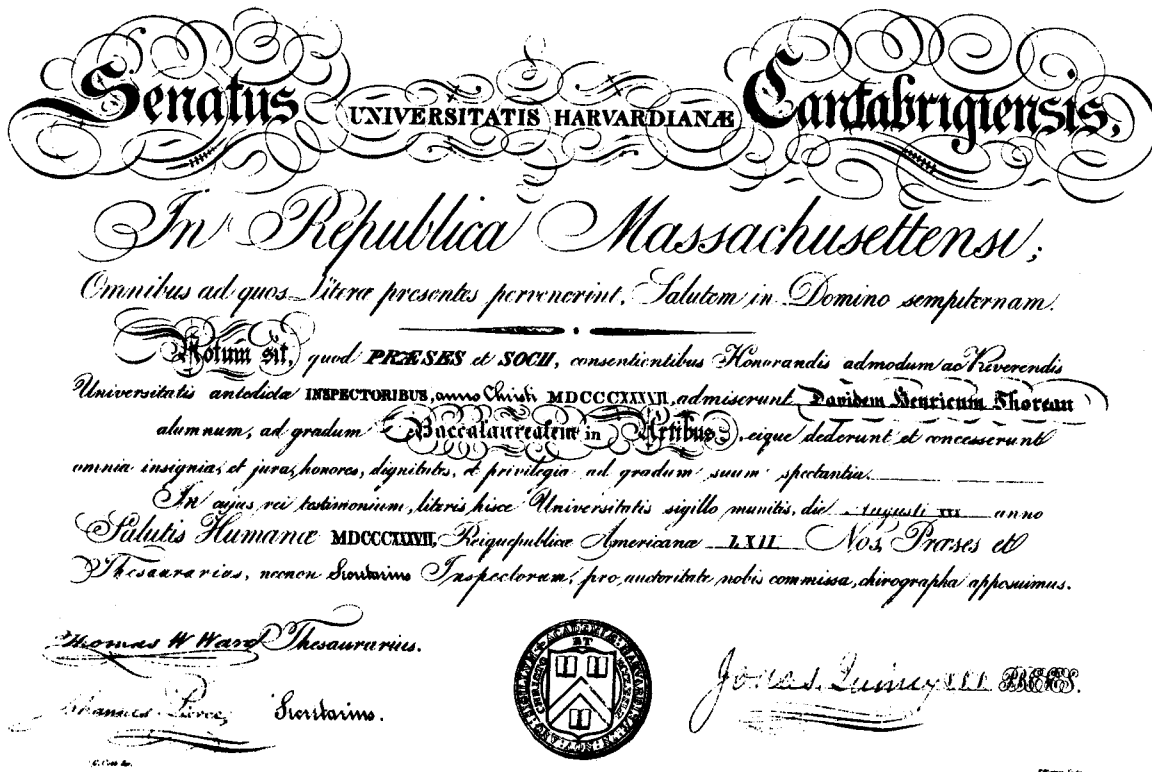 Senatus UNIVERSITATIS HARVARDIANÆ Cantabrigiensis,
In Republica Massachusettensi;
Omnibus ad quos literæ presentes pervenerint, Salutem in Domino sempiternam.
Notum sit, quod PRÆSES et SOCII, consentientibus Honorandis admodum ac Reverendis
Universitatis antedictæ INSPECTORIBUS, anno Christi MDCCCXXXVII, admiserunt Davidem Henricum Thoreau
alumnum, ad gradum Baccalaureatem in Artibus, eique dederunt et concesserunt
omnia insignia, et jura, honores, dignitates, et privilegia ad gradum suum spectantia.
In cujus rei testimonium, literis hisce Universitatis sigillo munitis, die Augusti XXX anno
Salutis Humanæ MDCCCXXXVII, Reiquepublicæ Americanæ LXII Nos, Præses et
Thesaurarius, necnon Secretarius Inspectorum, pro auctoritate nobis commissa, chirographa apposuimus.
Thomas W Ward Thesaurarius.
Johannes Pierce, Secretarius.
Quincy PRÆSES.